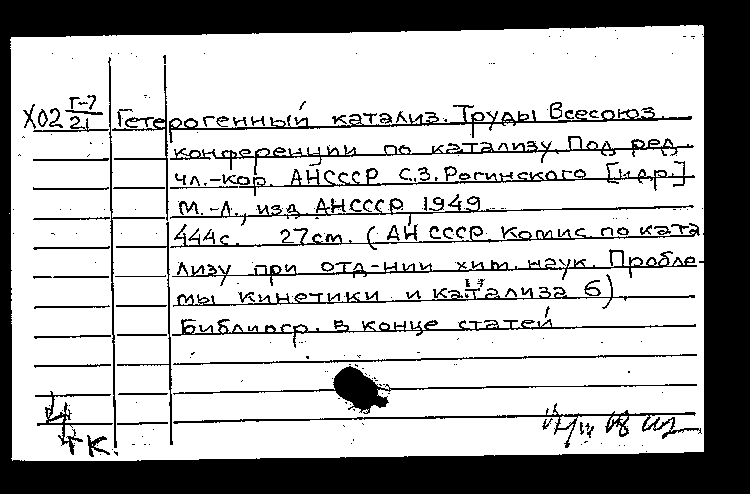 Х02 Г-7/21 Гетерогенный катализ. Труды Всесоюз.
конференции по катализу. Под ред.
чл.-кор. АНСССР С.З. Рогинского [и др.]
М.-Л., изд. АНСССР, 1949
444с. 27см. (АН СССР. Комис по ката
лизу при отд-нии хим. наук. Пробле-
мы кинетики и катализа 6).
Библиогр. в конце статей
ГК.